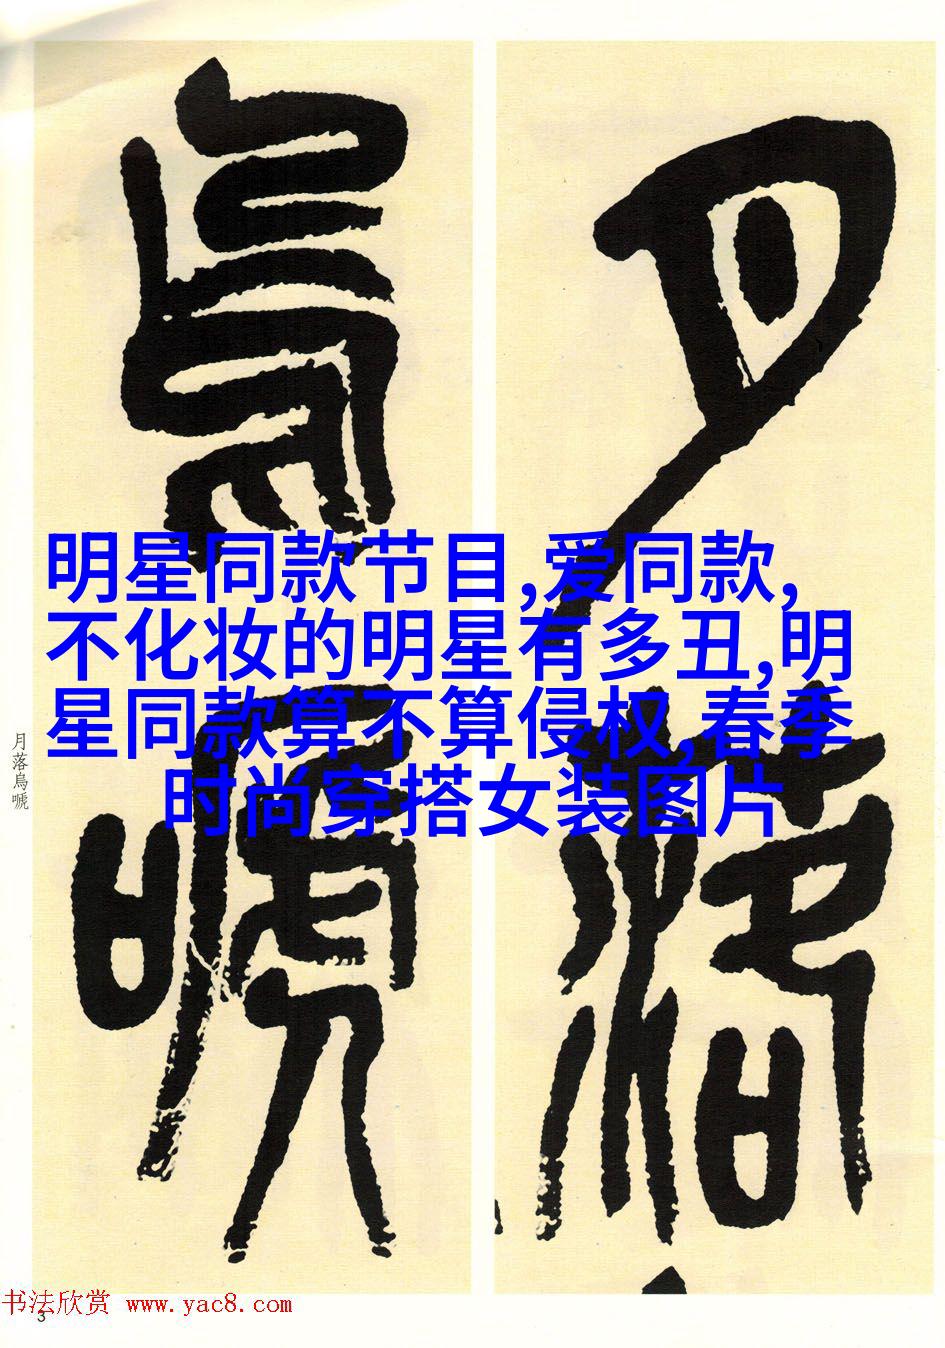 月落
烏嗁
明星同款节目,爱同款,
不化妆的明星有多丑,明
星同款算不算侵权,春季
时尚穿搭女装图片
月落烏嗁
书法欣赏 www.yac8.com
3